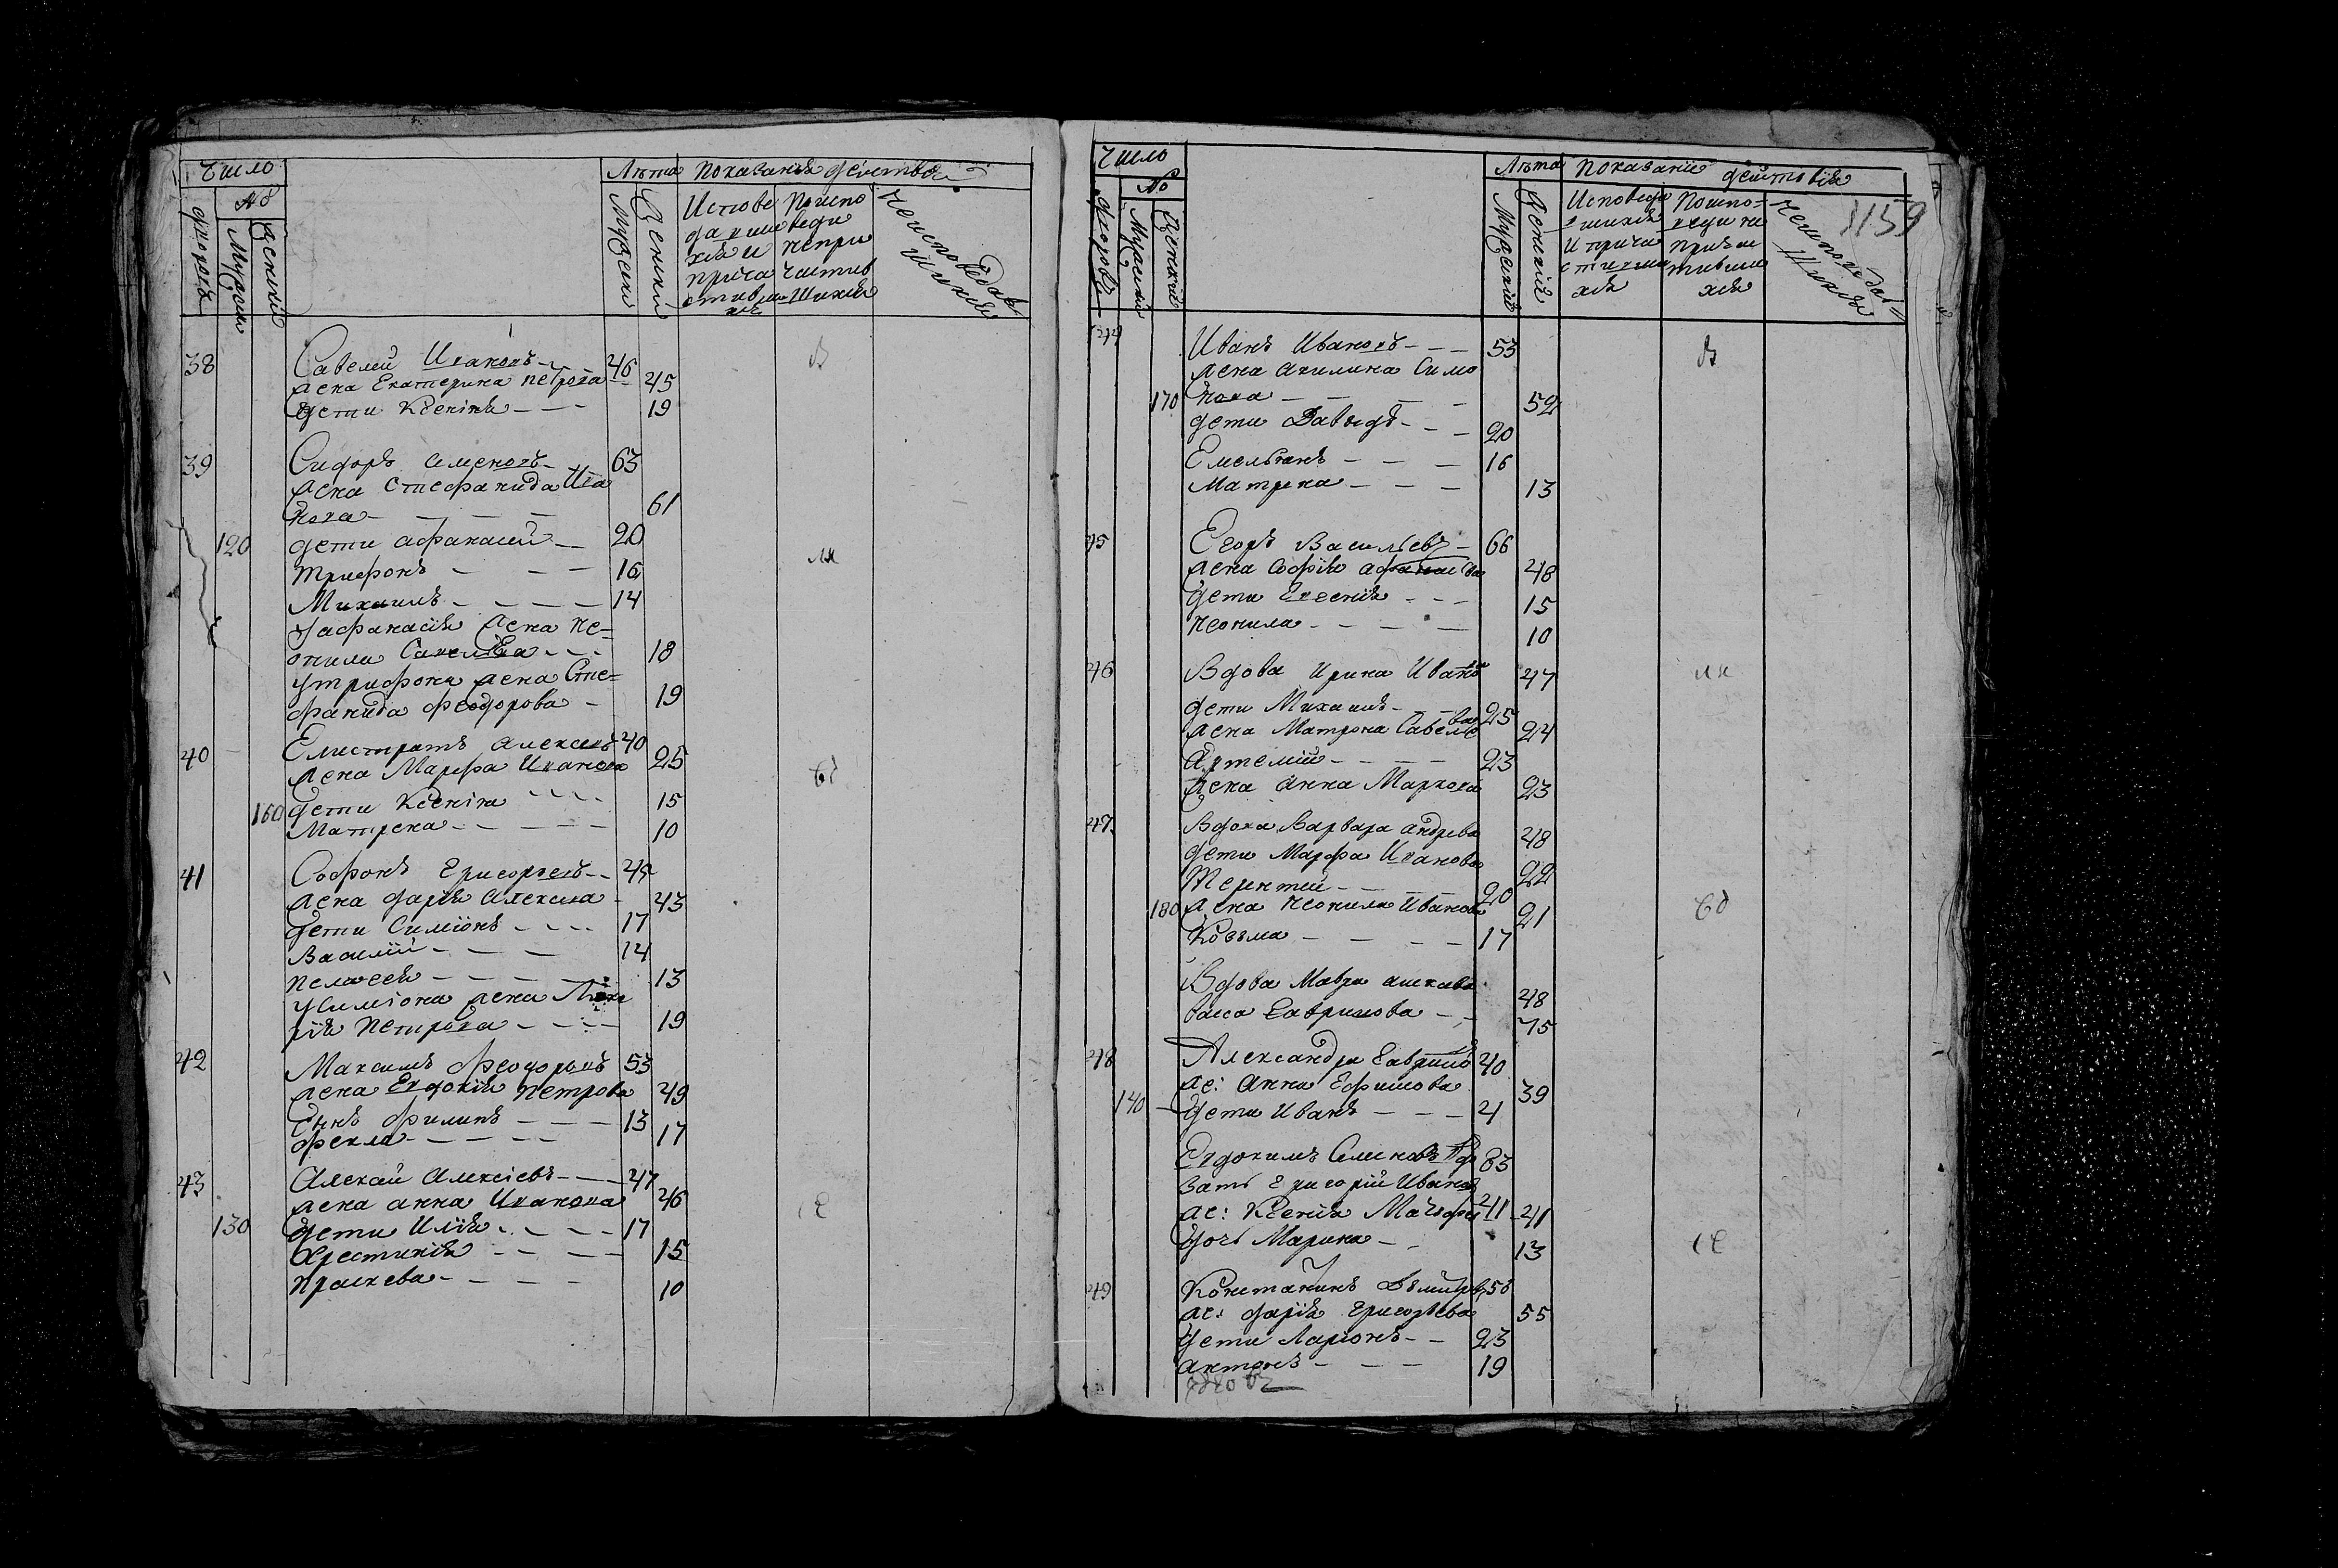 Число
№
дворовъ
Мужеск
Женский
Лѣта
Мужески
Женски
Показанія действа
Испове
давши
хся и
прича
стивши
хся
По испо
веди
непри
частив
шихся
Неисповедав
шихся
38 Савелий Ивановъ 46
жена Екатерина Петрова 45
дети Ксенія 19
В
39 Сидоръ Семеновъ 63
жена Стефанида Ива
нова 61
120 дети Афанасий 20
Трифонъ 16
Михаилъ 14
у афанасія жена Не=
онила Савелева 18
у трифона жена Сте=
фанида Феодорова 19
ля
40 Елистратъ Алексеевъ 40
жена Марфа Иванова 25
160 дети Ксенія 15
Матрена 10
41 Софонъ Григорьевъ 45
жена дарія Алексеева 43
дети Симіонъ 17
Василій 14
Пелагея 13
у Симіона жена Ма
рія Петрова 19
42 Максимъ Феодоровъ 53
жена Евдокія Петрова 49
Сынъ Филипъ 13
Фекла 17
43 Алексей Алексіевъ 47
жена анна Иванова 46
130 дети Илія 17
Христинія 15
Праскева 10
Число
№
дворовъ
Мужески
Женский
Лѣта
Мужескій
Женскій
Показаніи действія
Исповеда
вшихся
и прича
стивши
хся
По испо=
веди не
причас
тивши
хся
Неисповедав
шихся
1159
44 Иванъ Ивановъ 53
жена Акилина Симо
170 нова 52
дети Давыдъ 20
Емельянъ 16
Матрена 13
В
45 Егоръ Васильевъ 66
жена Софія афанасева 48
дети Евгенія 15
Неонила 10
46 Вдова Ирина Иванова 47
дети Михаилъ 25
жена Матрона Савелева 24
Артемій 23
жена Анна Маркова 23
ля
47 Вдова Варвара Андрева 48
дети Марфа Иванова 22
Терентий 20
180 жена Неонила Иванова 21
Козьма 17
Вдова Мавра 48
Васса Гаврилова 75
48 Александръ Гаврило 40
же: Анна Ефимова 39
140 дети Иванъ 4
Евдокимъ Семеновъ 83
Зать Григорій Иванов 41
же: Ксенія 41
дочь Марина 13
49 Констанинъ 58
же: дарія Григорьева 55
дети Ларіонъ 23
антонъ 19